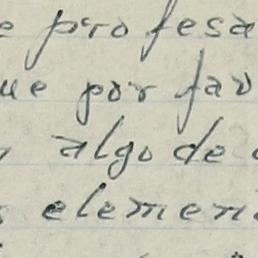 e profesa
ue por fav
algo de
s elemen